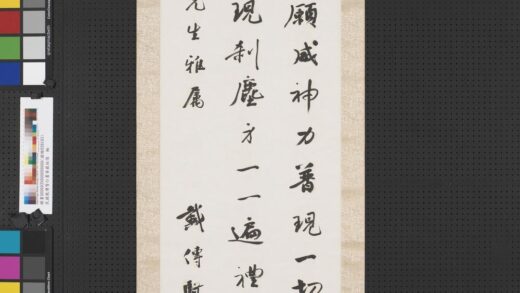 願威神力普現一切
現剎塵身一一遍禮
先生雅屬
戴傳賢